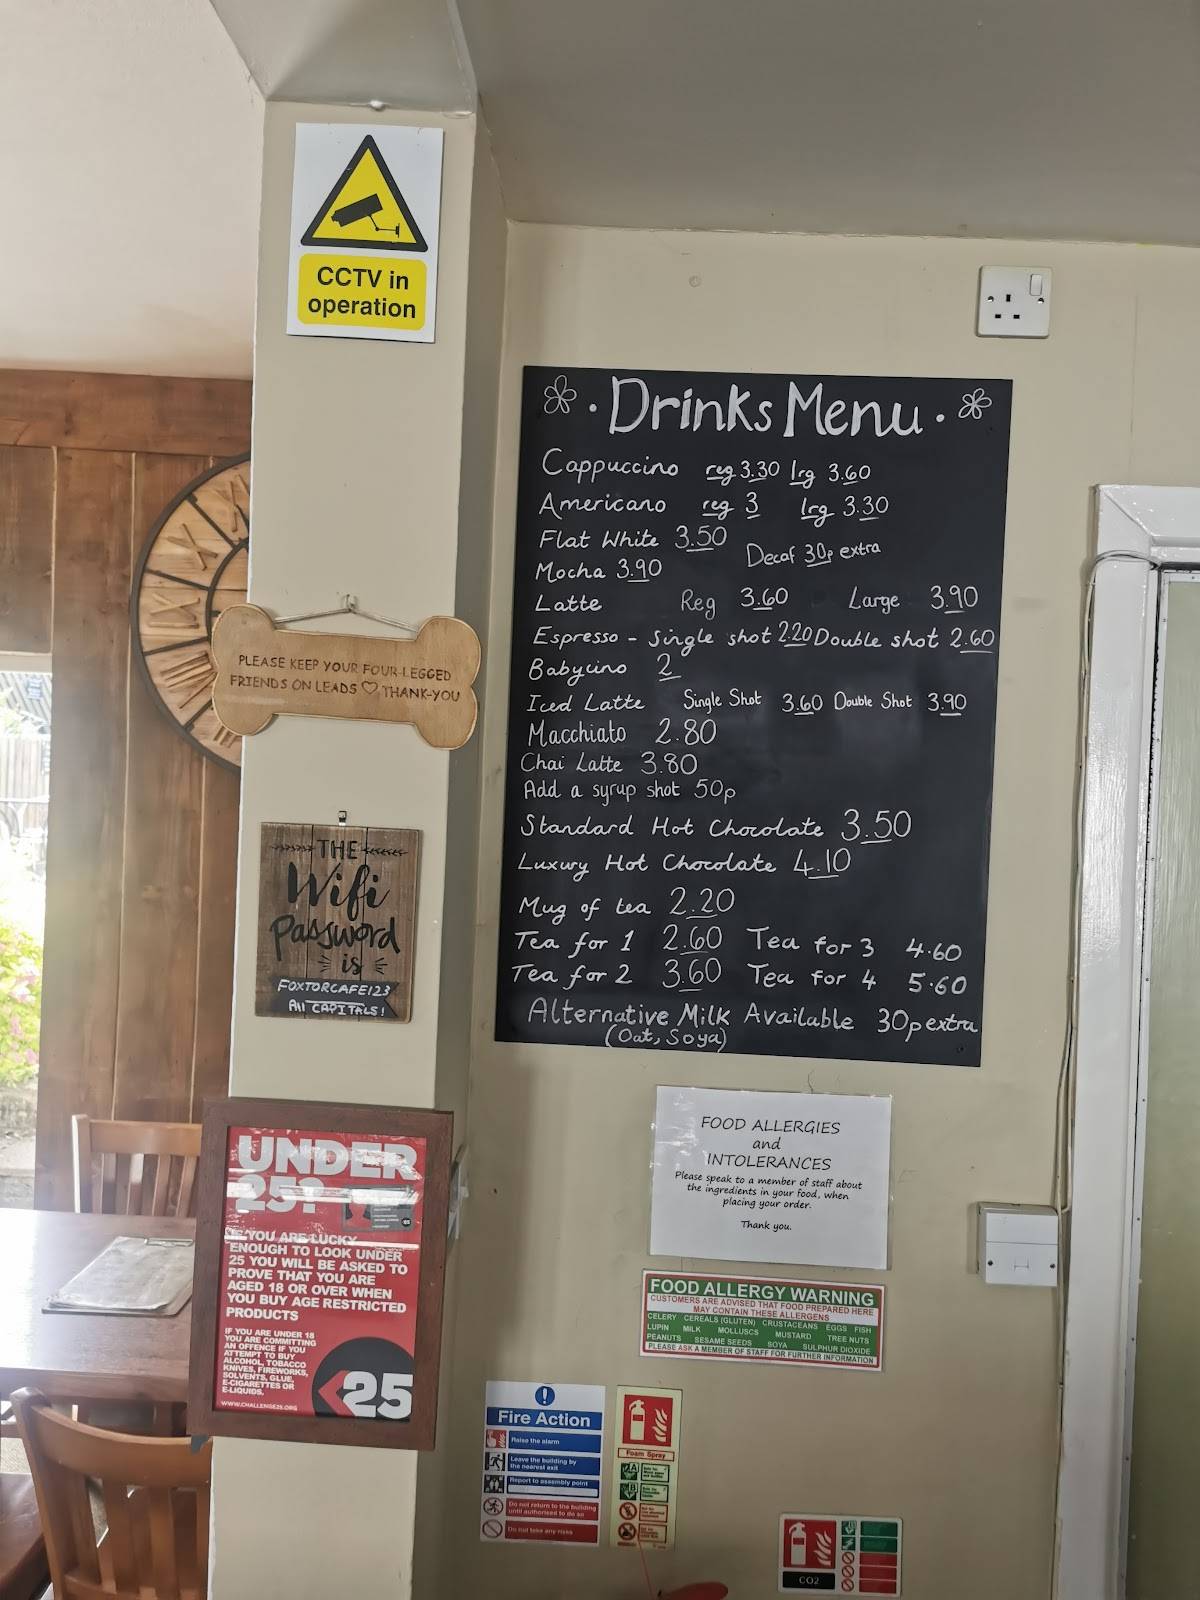 CCTV in
operation
· Drinks Menu ·
Cappuccino reg 3.30 lrg 3.60
Americano reg 3 lrg 3.30
Flat White 3.50
Decaf 30p extra
Mocha 3.90
Latte Reg 3.60 Large 3.90
Espresso - Single shot 2.20 Double shot 2.60
Babycino 2
Iced Latte Single Shot 3.60 Double Shot 3.90
Macchiato 2.80
Chai Latte 3.80
Add a syrup shot 50p
Standard Hot Chocolate 3.50
Luxury Hot Chocolate 4.10
Mug of tea 2.20
Tea for 1 2.60 Tea for 3 4.60
Tea for 2 3.60 Tea for 4 5.60
Alternative Milk Available 30p extra
(Oat, Soya)
PLEASE KEEP YOUR FOUR-LEGGED
FRIENDS ON LEADS ♡ THANK-YOU
THE
Wifi
password
is
FOXTORCAFE123
All CAPITALS!
UNDER
25?
IF YOU ARE LUCKY
ENOUGH TO LOOK UNDER
25 YOU WILL BE ASKED TO
PROVE THAT YOU ARE
AGED 18 OR OVER WHEN
YOU BUY AGE RESTRICTED
PRODUCTS
IF YOU ARE UNDER 18
YOU ARE COMMITTING
AN OFFENCE IF YOU
ATTEMPT TO BUY
ALCOHOL, TOBACCO
KNIVES, FIREWORKS,
SOLVENTS, GLUE,
E-CIGARETTES OR
E-LIQUIDS.
WWW.CHALLENGE25.ORG
25
FOOD ALLERGIES
and
INTOLERANCES
Please speak to a member of staff about
the ingredients in your food, when
placing your order.
Thank you.
FOOD ALLERGY WARNING
CUSTOMERS ARE ADVISED THAT FOOD PREPARED HERE
MAY CONTAIN THESE ALLERGENS
CELERY CEREALS (GLUTEN) CRUSTACEANS EGGS FISH
LUPIN MILK MOLLUSCS MUSTARD TREE NUTS
PEANUTS SESAME SEEDS SOYA SULPHUR DIOXIDE
PLEASE ASK A MEMBER OF STAFF FOR FURTHER INFORMATION
Fire Action
Raise the alarm
Leave the building by
the nearest exit
Report to assembly point
Do not return to the building
until authorised to do so
Do not take any risks
Foam Spray
A
B
CO2